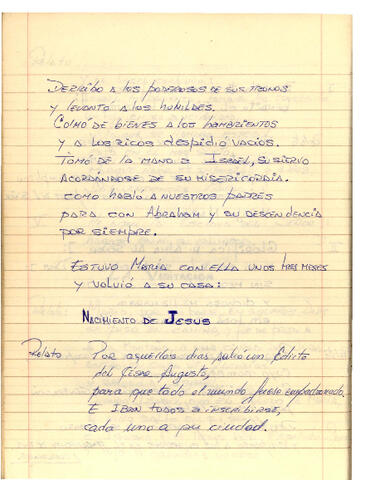 Derribó a los poderosos de sus tronos
y levantó a los humildes.
Colmó de bienes a los hambrientos
y a los ricos despidió vacíos.
Tomó de la mano a Israel, su siervo
acordándose de su misericordia.
como habló a nuestros padres
para con Abraham y su descendencia
por siempre.
Estuvo María con ella unos tres meses
y volvió a su casa:
Nacimiento de Jesus
Relato Por aquellos dias salió un Edicto
del César Augusto,
para que todo el mundo fuese empadronado.
E Iban todos a inscribirse,
cada uno a su ciudad.